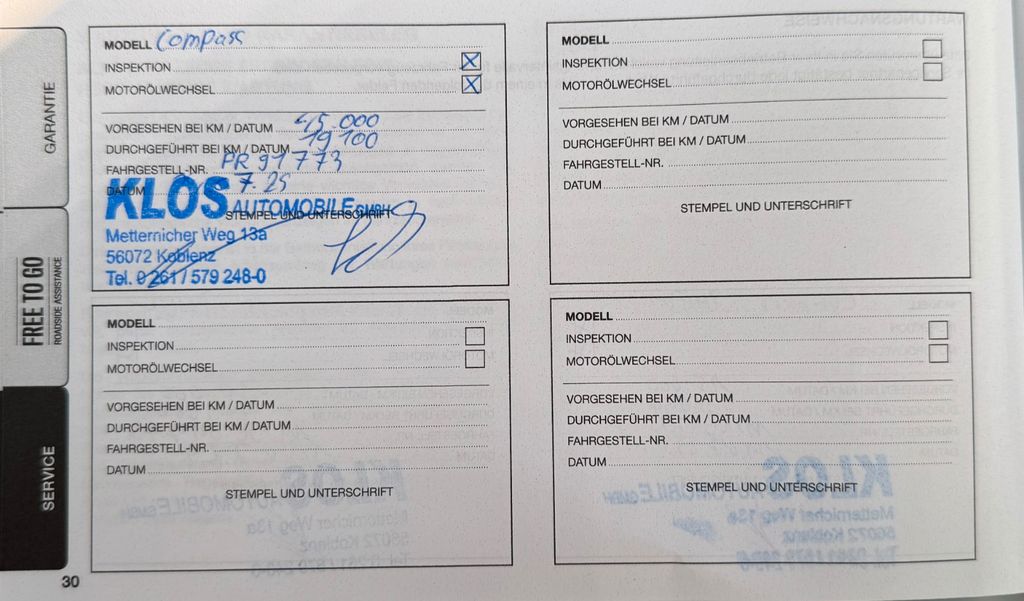 GARANTIE
FREE TO GO
ROADSIDE ASSISTANCE
SERVICE
MODELL Compass
INSPEKTION X
MOTORÖLWECHSEL X
VORGESEHEN BEI KM / DATUM 45.000
DURCHGEFÜHRT BEI KM / DATUM 19 100
FAHRGESTELL-NR. PR 91 773
DATUM 7.25
KLOS AUTOMOBILE GMBH
STEMPEL UND UNTERSCHRIFT
Metternicher Weg 13a
56072 Koblenz
Tel. 0 261 / 579 248-0
MODELL
INSPEKTION
MOTORÖLWECHSEL
VORGESEHEN BEI KM / DATUM
DURCHGEFÜHRT BEI KM / DATUM
FAHRGESTELL-NR.
DATUM
STEMPEL UND UNTERSCHRIFT
MODELL
INSPEKTION
MOTORÖLWECHSEL
VORGESEHEN BEI KM / DATUM
DURCHGEFÜHRT BEI KM / DATUM
FAHRGESTELL-NR.
DATUM
STEMPEL UND UNTERSCHRIFT
MODELL
INSPEKTION
MOTORÖLWECHSEL
VORGESEHEN BEI KM / DATUM
DURCHGEFÜHRT BEI KM / DATUM
FAHRGESTELL-NR.
DATUM
STEMPEL UND UNTERSCHRIFT
30